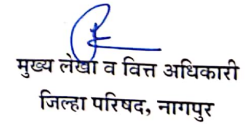 मुख्य लेखा व वित्त अधिकारी
जिल्हा परिषद, नागपुर